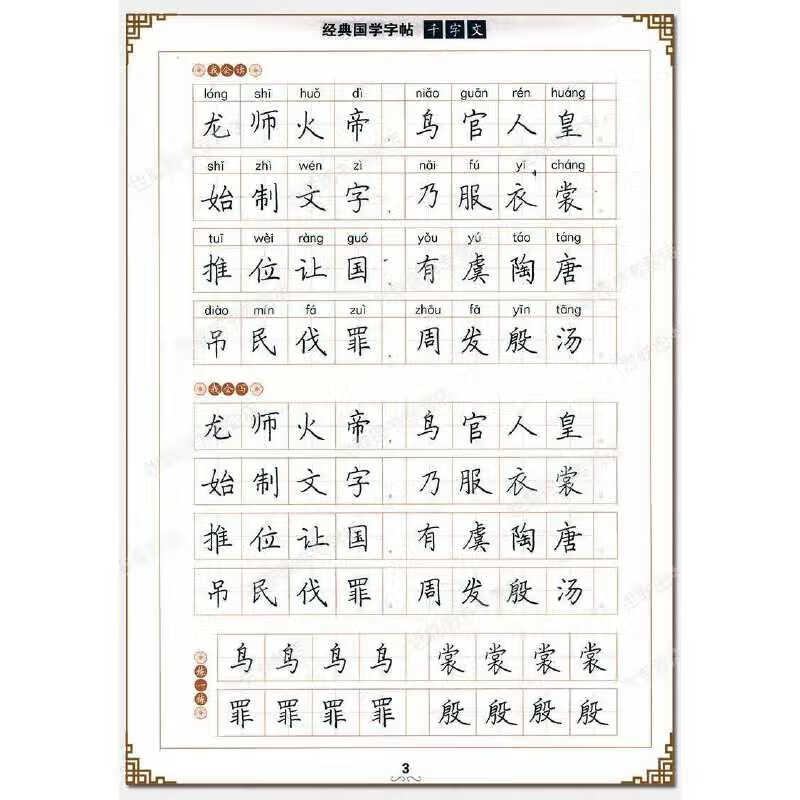 经典国学字帖 千字文
我会读
lóng shī huǒ dì niǎo guān rén huáng
龙师火帝 鸟官人皇
shǐ zhì wén zì nǎi fú yī cháng
始制文字 乃服衣裳
tuī wèi ràng guó yǒu yú táo táng
推位让国 有虞陶唐
diào mín fá zuì zhōu fā yīn tāng
吊民伐罪 周发殷汤
我会写
龙师火帝 鸟官人皇
始制文字 乃服衣裳
推位让国 有虞陶唐
吊民伐罪 周发殷汤
练一练
鸟鸟鸟鸟 裳裳裳裳
罪罪罪罪 殷殷殷殷
3